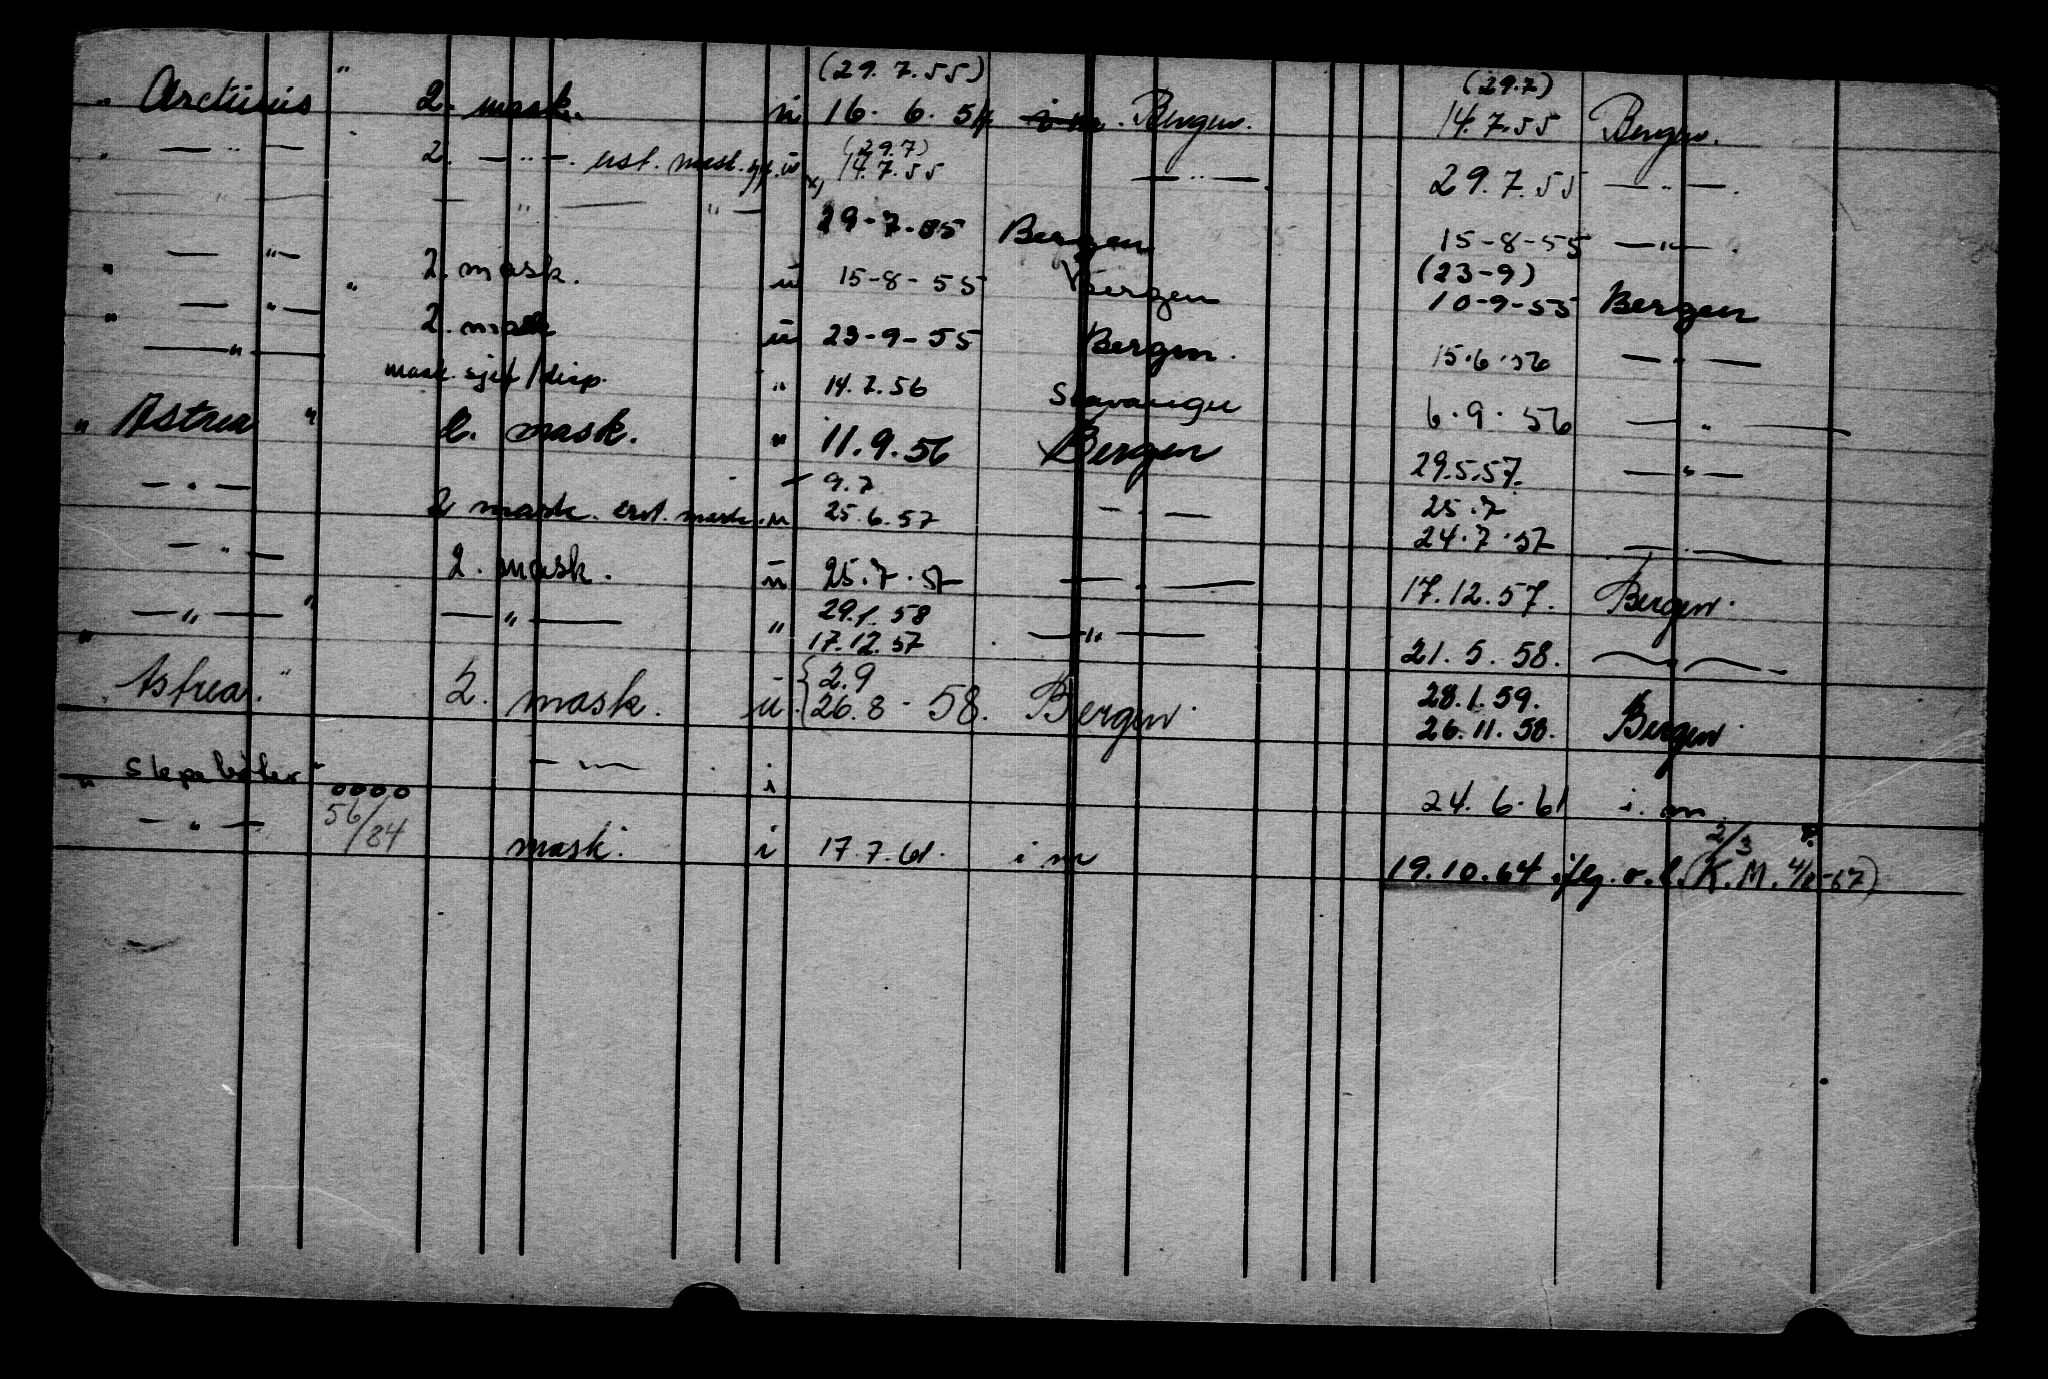 (29. 7. 55) (29.7)
" Arcturus " 2. mask. ü 16. 6. 54 i m. Bergen. 14. 7. 55 Bergen.
" — " — 2. — " —. erst. mask. ü x) (29.7) 14. 7. 55 — " —. 29. 7. 55 — " —.
— " — — " — " — 29-7-55 Bergen 15-8-55 — " —.
" — " — " 2. mask. ü 15-8-55 Bergen (23-9) 10-9-55 Bergen
" — " — 2. mask ü 23-9-55 Bergen. 15.6.56 — " —
— " — mask. sjef/disp. " 14.7.56 Stavanger 6.9.56 — " —
" Astrea " 2. mask. " 11.9.56 Bergen 29.5.57. — " —
— " — 2 mask. erst. mask. ü 9.7 25.6.57 — " — 25.7 24.7.57 — " —
— " — 2. mask. ü 25.7.57 — " — 17.12.57. Bergen.
" — " — " — " — " 29.1.58 17.12.57 — " — 21. 5. 58. — " —
" Astrea. " 2. mask. ü. { 2.9 26.8-58. Bergen. 28.1.59. 26.11.58. Bergen.
" Slepebåter " oooo — " — i 24. 6. 61 i. m
— " — 56/84 mask. i 17.7.61. i m 19.10.64 2/3 (K.M. -67)